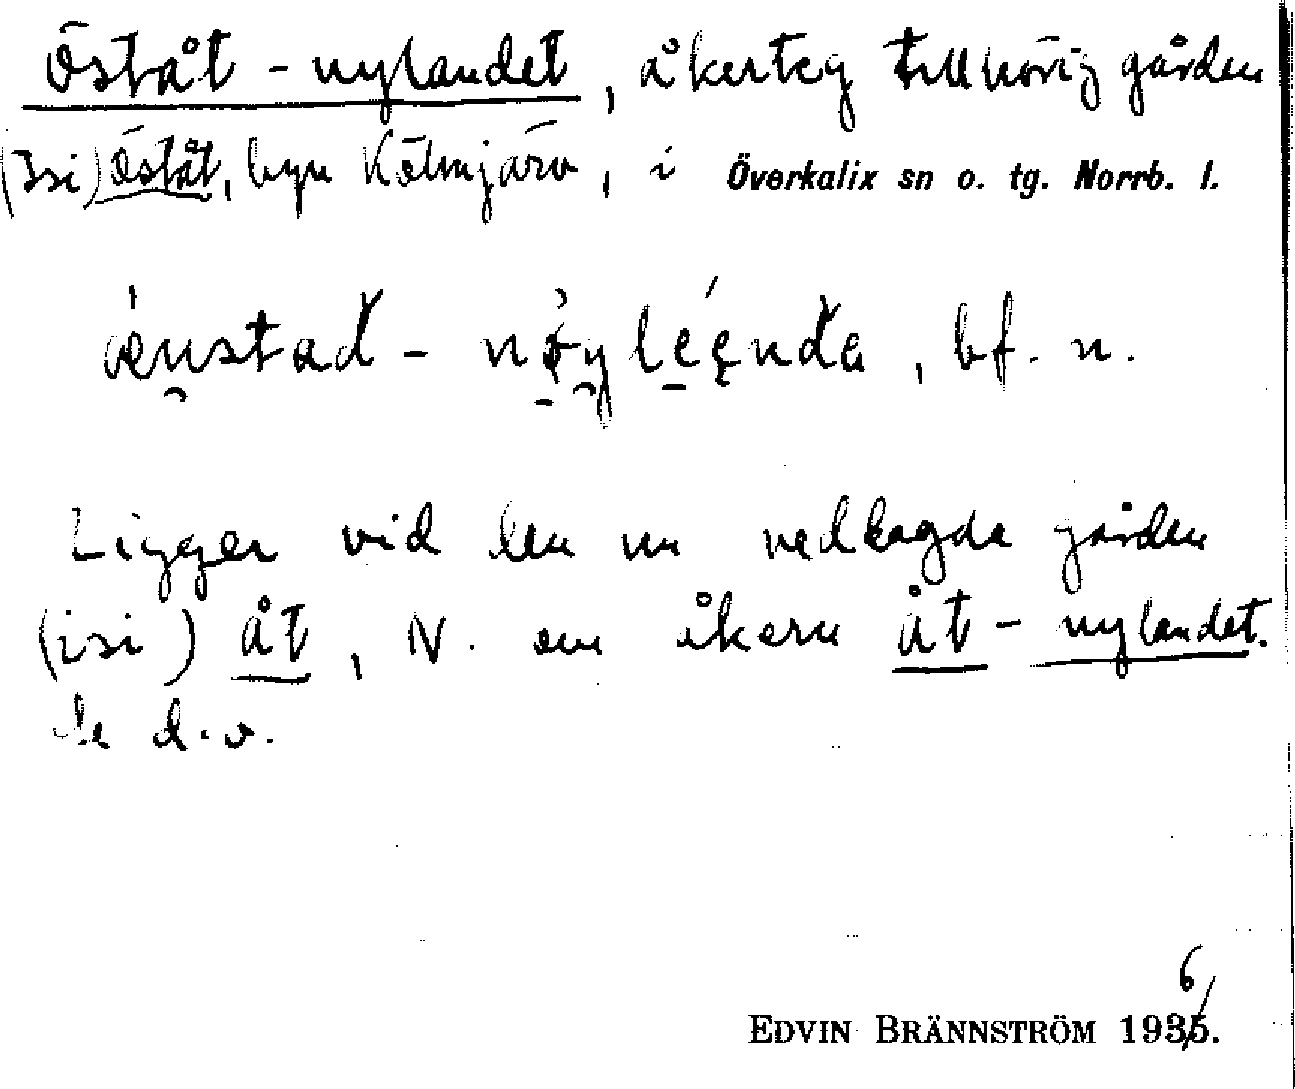 Öståt-nylandet, åkerteg tillhörig gården
(3si) Öståt, byn Kölmjärv, i Överkalix sn o. tg. Norrb. l.
bf. n.
Ligger vid den nu nedlagda gården
(2si) Åt, N. om åkern Åt-nylandet.
Se d.o.
EDVIN BRÄNNSTRÖM 1936.